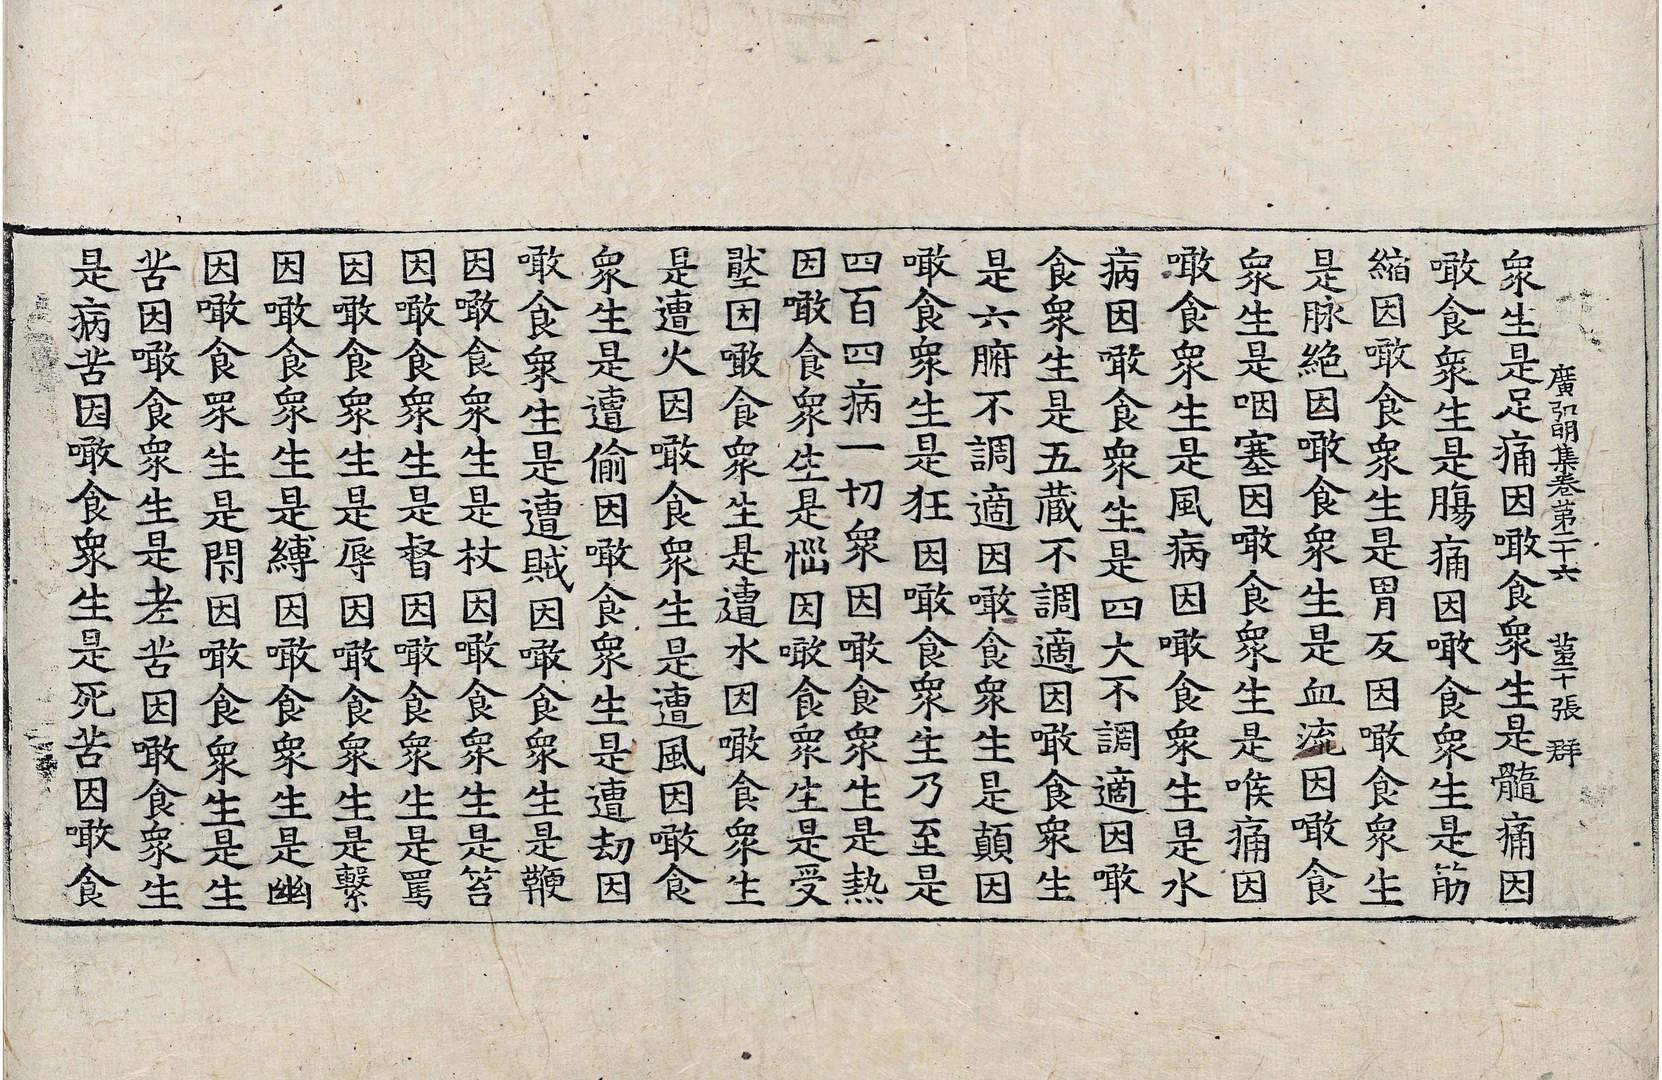 廣弘明集卷第二十六　第二十張　群
衆生是足痛因噉食衆生是髓痛因
噉食衆生是腸痛因噉食衆生是筋
縮因噉食衆生是胃反因噉食衆生
是脉絕因噉食衆生是血流因噉食
衆生是咽塞因噉食衆生是喉痛因
噉食衆生是風病因噉食衆生是水
病因噉食衆生是四大不調適因噉
食衆生是五藏不調適因噉食衆生
是六腑不調適因噉食衆生是顛因
噉食衆生是狂因噉食衆生乃至是
四百四病一切衆因噉食衆生是熱
因噉食衆生是惱因噉食衆生是受
壓因噉食衆生是遭水因噉食衆生
是遭火因噉食衆生是遭風因噉食
衆生是遭偷因噉食衆生是遭劫因
噉食衆生是遭賊因噉食衆生是鞭
因噉食衆生是杖因噉食衆生是笞
因噉食衆生是督因噉食衆生是罵
因噉食衆生是辱因噉食衆生是繫
因噉食衆生是縛因噉食衆生是幽
因噉食衆生是閉因噉食衆生是生
苦因噉食衆生是老苦因噉食衆生
是病苦因噉食衆生是死苦因噉食